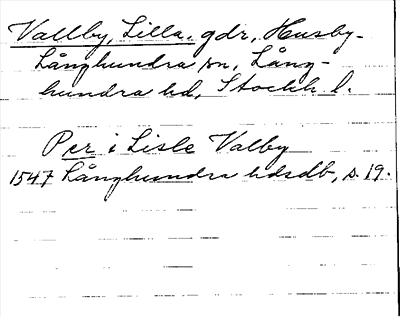 Vallby, Lilla, gdr, Husby-
Långhundra sn, Lång-
hundra hd, Stockh. l.
Per i Lisle Valby
1547 Långhundra hdsdb, s. 19.